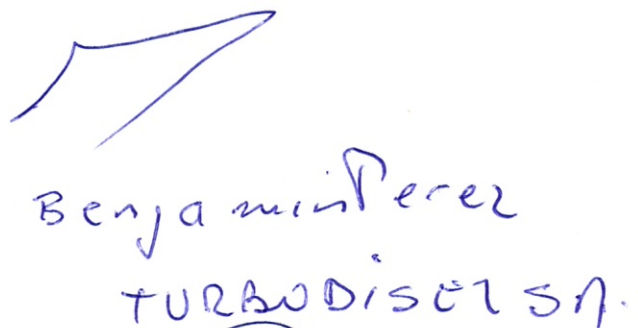 Benjamin Perez
TURBODISEL SA.